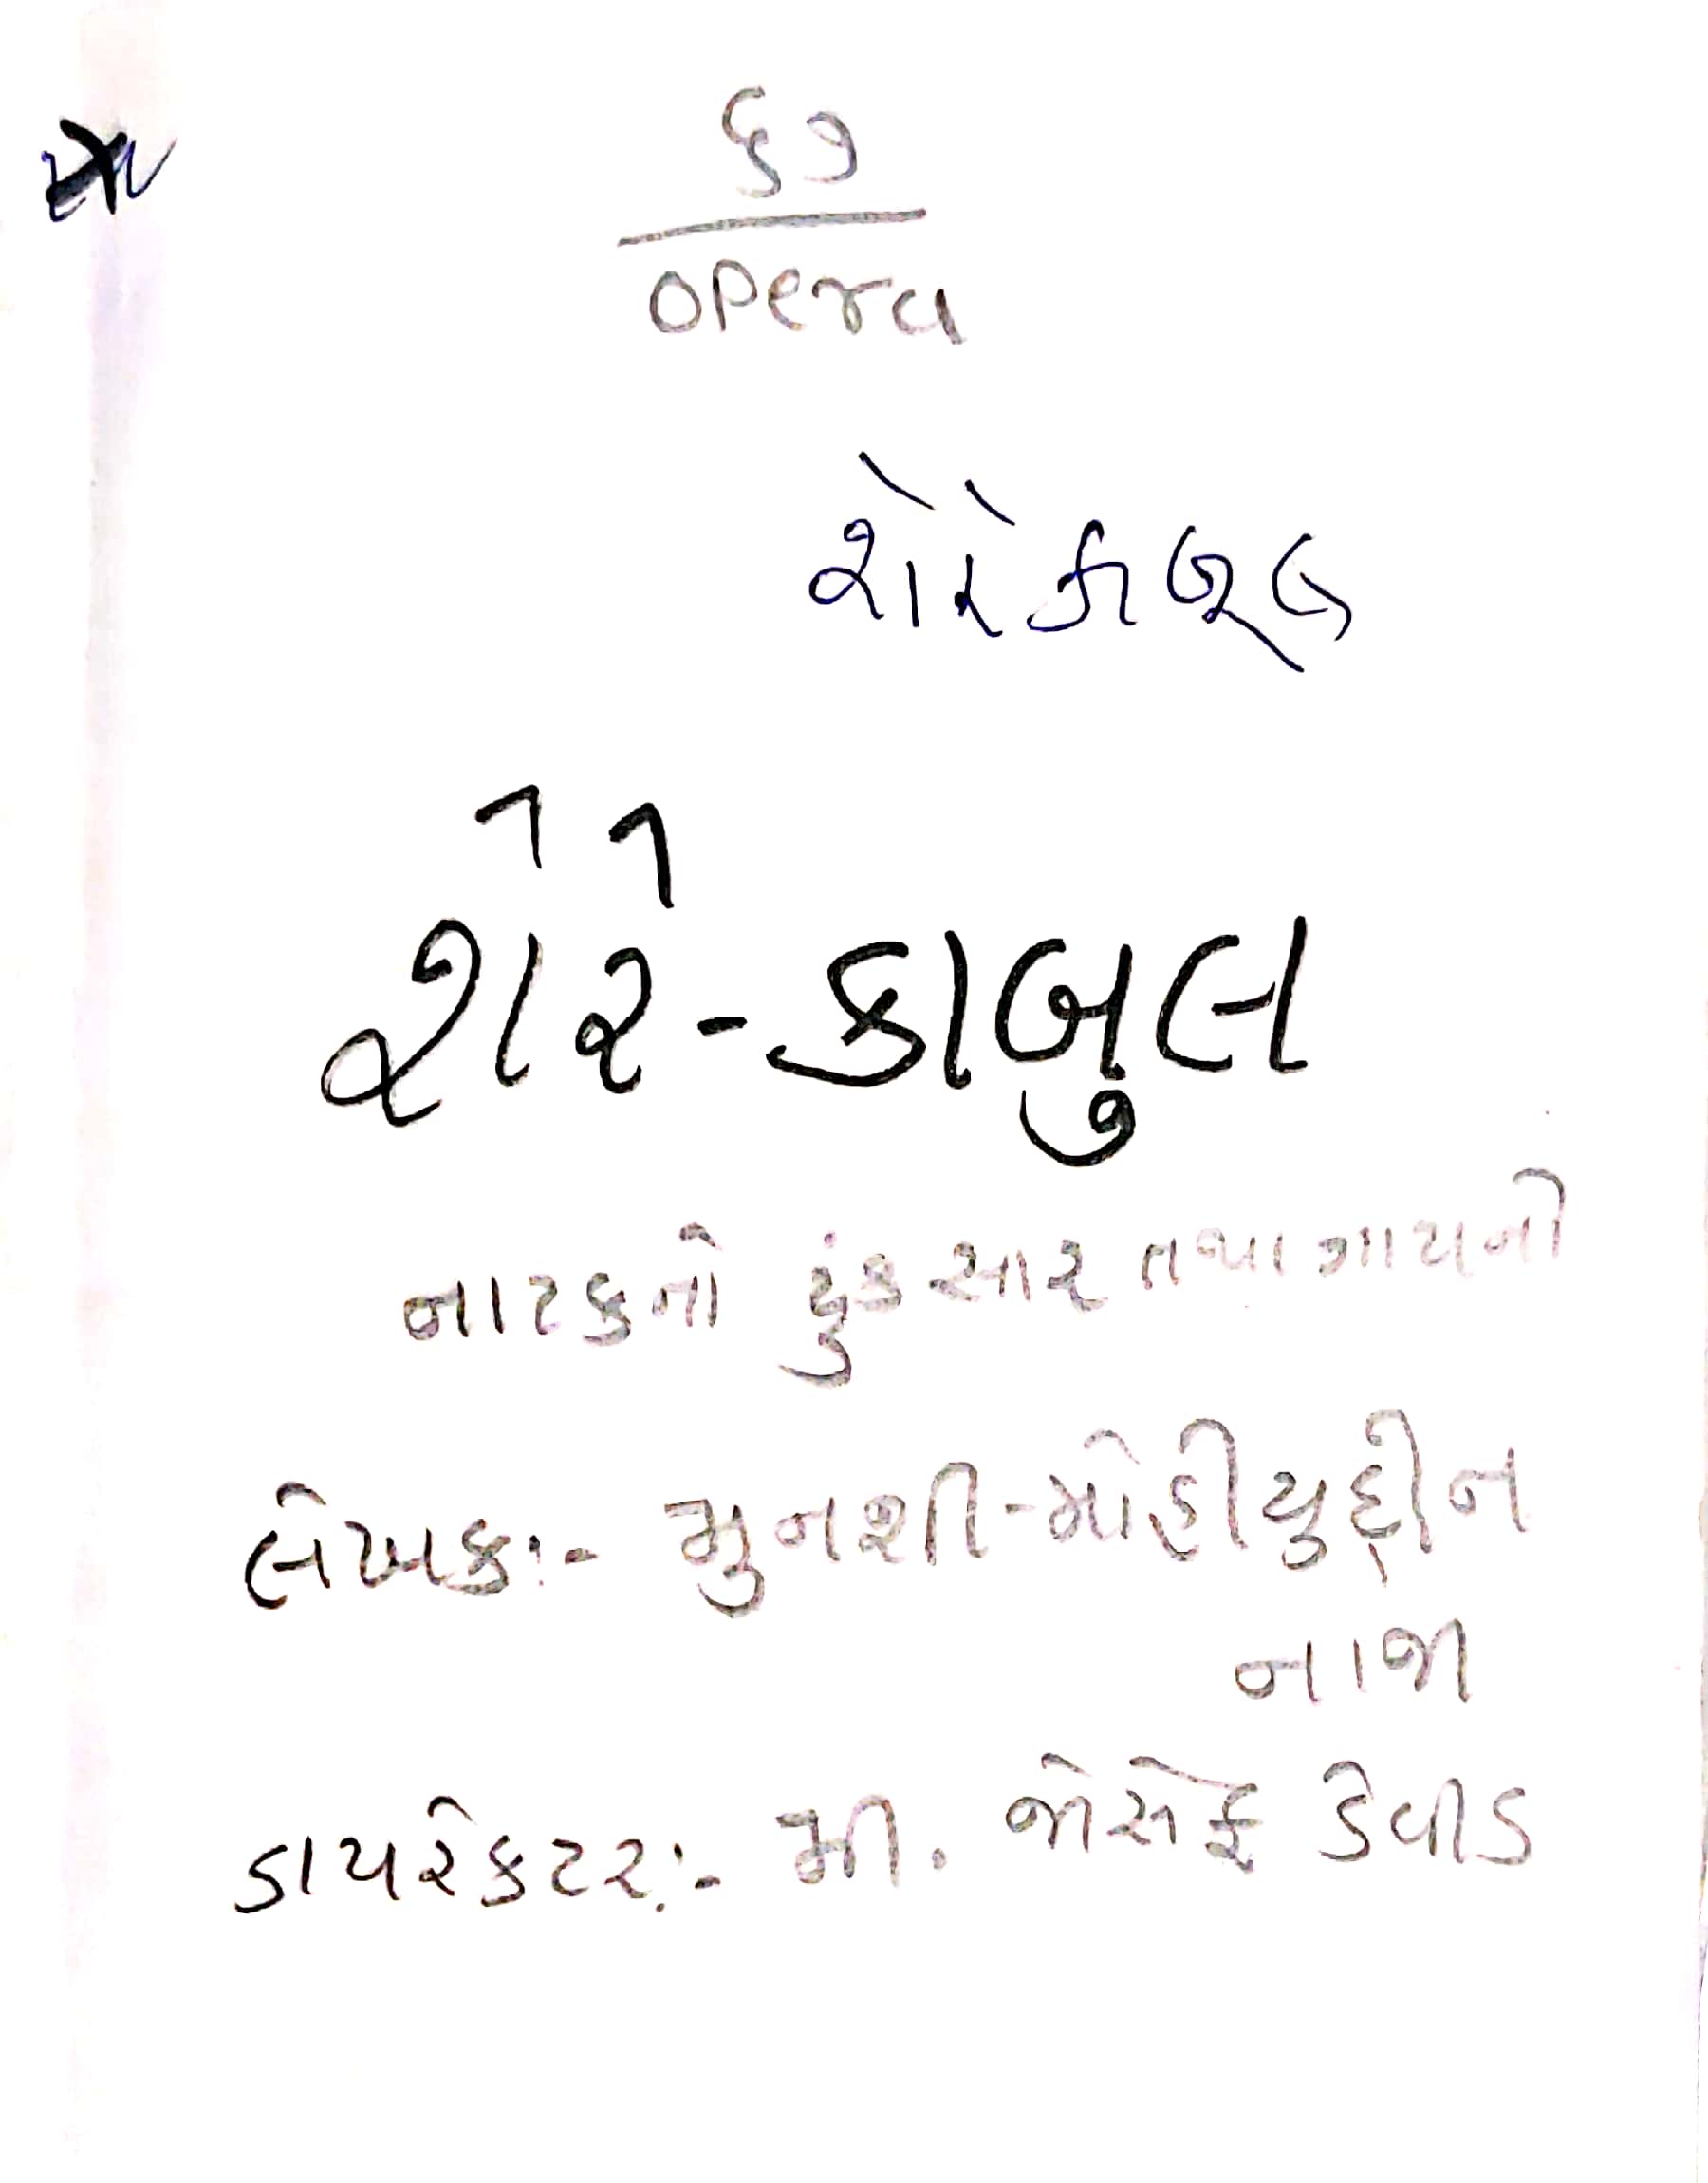 ૬૭
opera
શેરે કાબૂલ
શેરે-કાબુલ
નાટકનો ટુંકસાર તથા ગાયનો
લેખક:- મુનશી-મોહીયુદ્દીન
નાજા
ડાયરેકટર:- મી. જોસેફ ડેવીડ